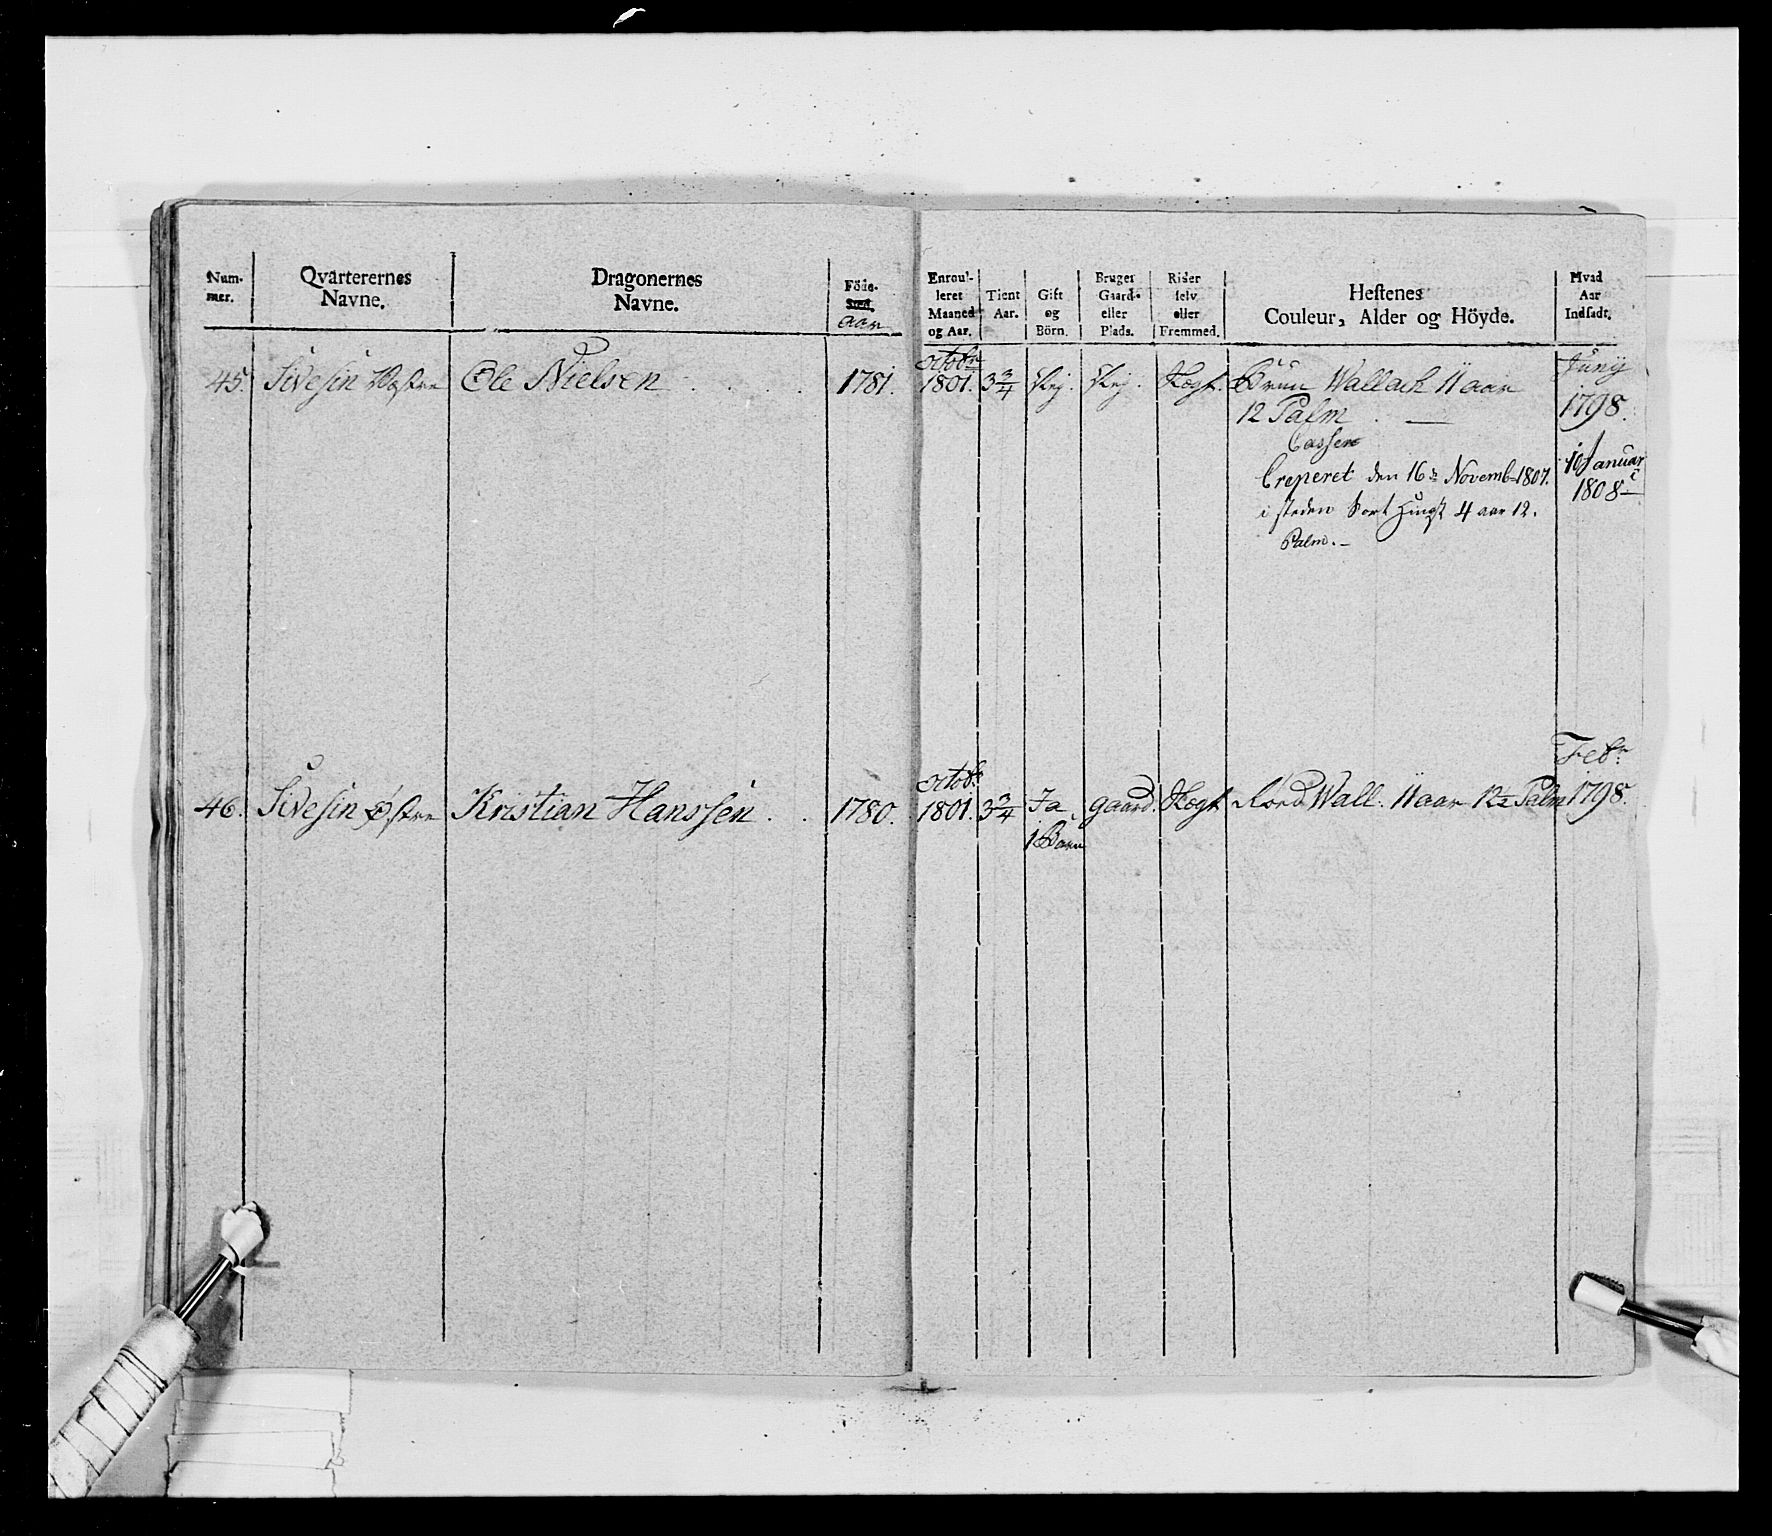 Num-
mer.
Qvarterernes
Navne.
Dragonernes
Navne.
Föde-
Sted.
aar
Enroul-
leret
Maaned
og Aar.
Tient
Aar.
Gift
og
Börn.
Bruger
Gaard-
eller
Plads.
Rider
selv
eller
Fremmed.
Hestenes
Couleur, Alder og Höyde.
Hvad
Aar
Indsadt.
45. Sivesin Vestre Ole Nielsen 1781.
octobr
1801. 3 3/4 Nej. Nej. Brun Wallach 11 aar
12 Palm
Junij
1798.
Casser
Creperet den 16de Novemb 1807.
i steden Sort Hingst 4 aar 12.
Palm.
10 Januar
1808
46. Sivesin Østre Kristian Hanssen 1780.
octobr
1801. 3 3/4 Ja gaard. Röed Wall: 11 aar 12 1/2 Palm
1 Barn
Febr
1798.